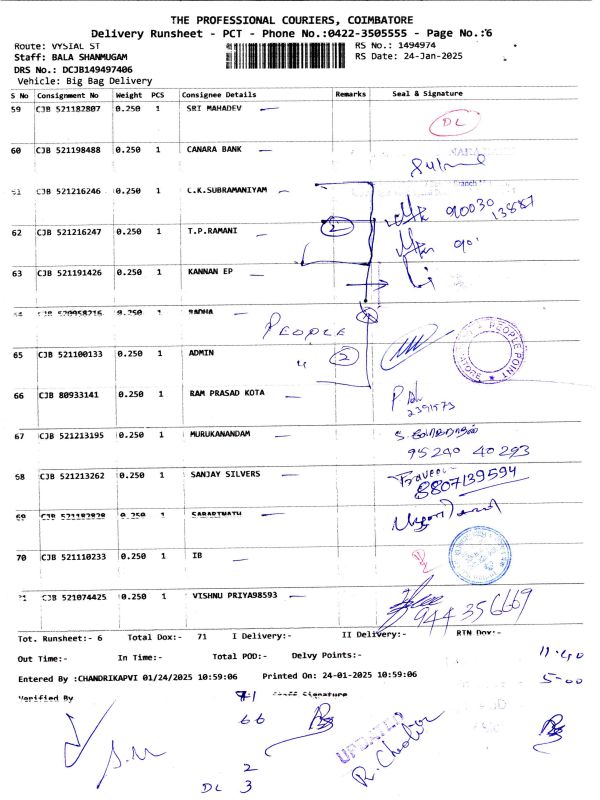 THE PROFESSIONAL COURIERS, COIMBATORE
Delivery Runsheet - PCT - Phone No.:0422-3505555 - Page No.:6
Route: VYSIAL ST
RS No.: 1494974
Staff: BALA SHANMUGAM
RS Date: 24-Jan-2025
DRS No.: DCJB149497406
Vehicle: Big Bag Delivery
S No Consignment No Weight PCS Consignee Details Remarks Seal & Signature
59 CJB 521182807 0.250 1 SRI MAHADEV DL
60 CJB 521198488 0.250 1 CANARA BANK
61 CJB 521216246 0.250 1 C.K.SUBRAMANIYAM 90030 13887
62 CJB 521216247 0.250 1 T.P.RAMANI 2
63 CJB 521191426 0.250 1 KANNAN EP
64 CJB 520958216 0.250 1 RADHA
PEOPLE
65 CJB 521100133 0.250 1 ADMIN 2 PEOPLE POINT
66 CJB 80933141 0.250 1 RAM PRASAD KOTA 2391573
67 CJB 521213195 0.250 1 MURUKANANDAM
95240 40293
68 CJB 521213262 0.250 1 SANJAY SILVERS
8807139594
69 CJB 521182828 0.250 1 SABARINATH
70 CJB 521110233 0.250 1 IB
71 CJB 521074425 0.250 1 VISHNU PRIYA98593 944356669
Tot. Runsheet:- 6 Total Dox:- 71 I Delivery:- II Delivery:- RTN Dox:-
Out Time:- In Time:- Total POD:- Delvy Points:- 11.40
Entered By :CHANDRIKAPVI 01/24/2025 10:59:06 Printed On: 24-01-2025 10:59:06 5.00
Verified By 71 Staff Signature
66
UPDATED
2
DL 3